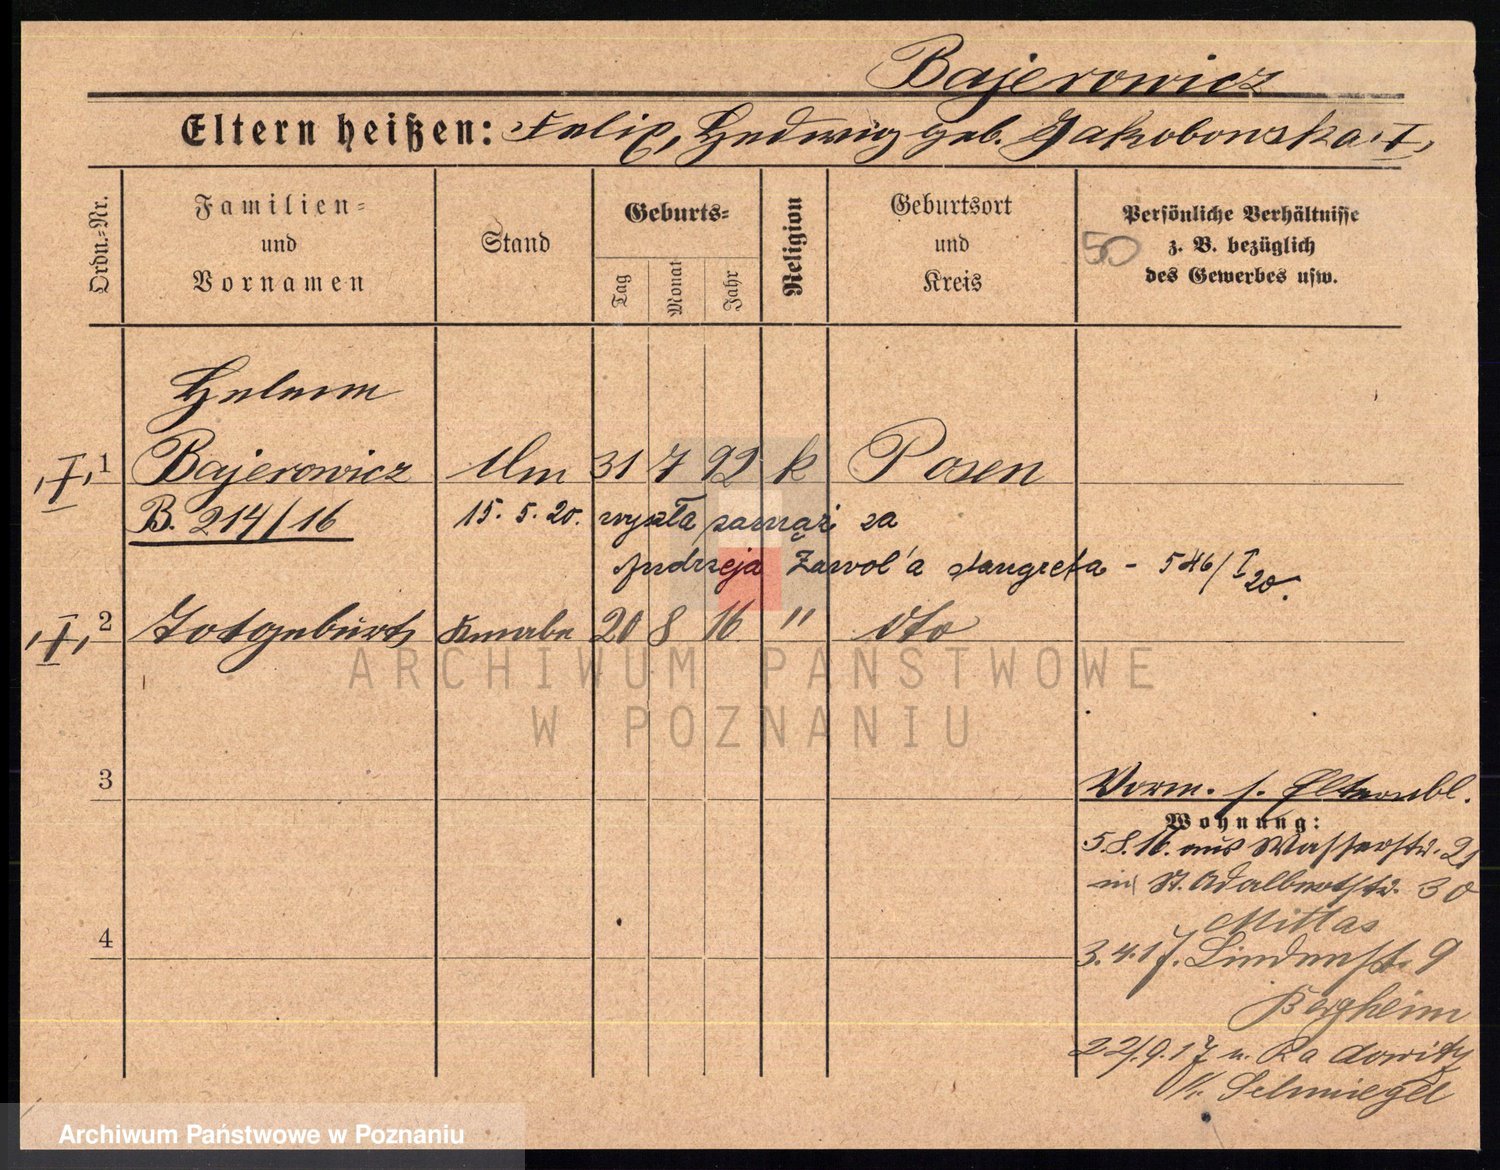 Bajerowicz
Eltern heißen: Felix, Hedwig geb. Jakobowska, I,
Ordn.-Nr.
Familien-
und
Vornamen
Stand
Geburts-
Tag
Monat
Jahr
Religion
Geburtsort
und
Kreis
Persönliche Verhältnisse
z. B. bezüglich
des Gewerbes usw.
50
Helene
,I, 1 Bajerowicz 31 7 92 k Posen
B. 214/16 15. 5. 20. wyszła zamąż za
Andrzeja Zawol'a stangreta - 546/I 20.
,I, 2 Totgeburt Knabe 20 8 16 " dto
ARCHIWUM PAŃSTWOWE
W POZNANIU
3
Vorm. s. Elternbl.
Wohnung:
5.8.16. aus Wasserstr. 21
in St. Adalbertstr. 30
Mittas
4
3.4.17. Lindenstr. 9
Bergheim
22/9.17 n. Radowitz
Schmiegel
Archiwum Państwowe w Poznaniu